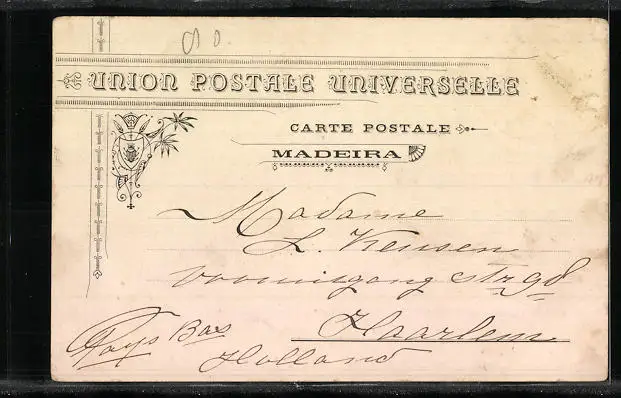 UNION POSTALE UNIVERSELLE
CARTE POSTALE
MADEIRA
Madame
L. Keusen
Str. 98
Haarlem
Pays Bas
Holland